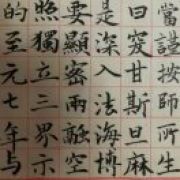 當諡按師所生
曰甘斯旦麻
是深入法海博
要顯密兩融空
照獨立三界示
的至元七年与